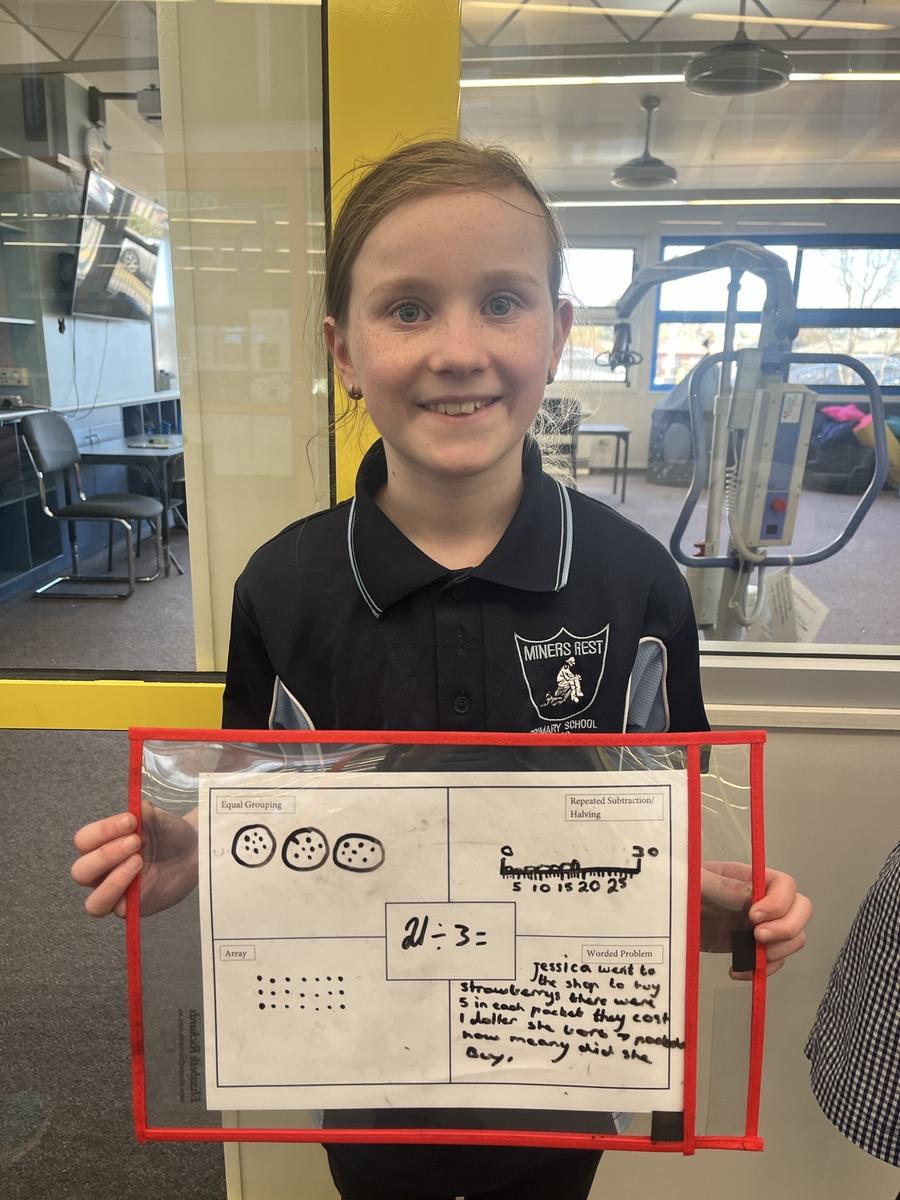 MINERS REST
PRIMARY SCHOOL
Equal Grouping
Repeated Subtraction/
Halving
0 30
5 10 15 20 25
21 ÷ 3 =
Array
Worded Problem
Jessica went to
the shop to buy
strawberrys there were
5 in each packet they cost
1 doller she 7
how meany did she
Buy.